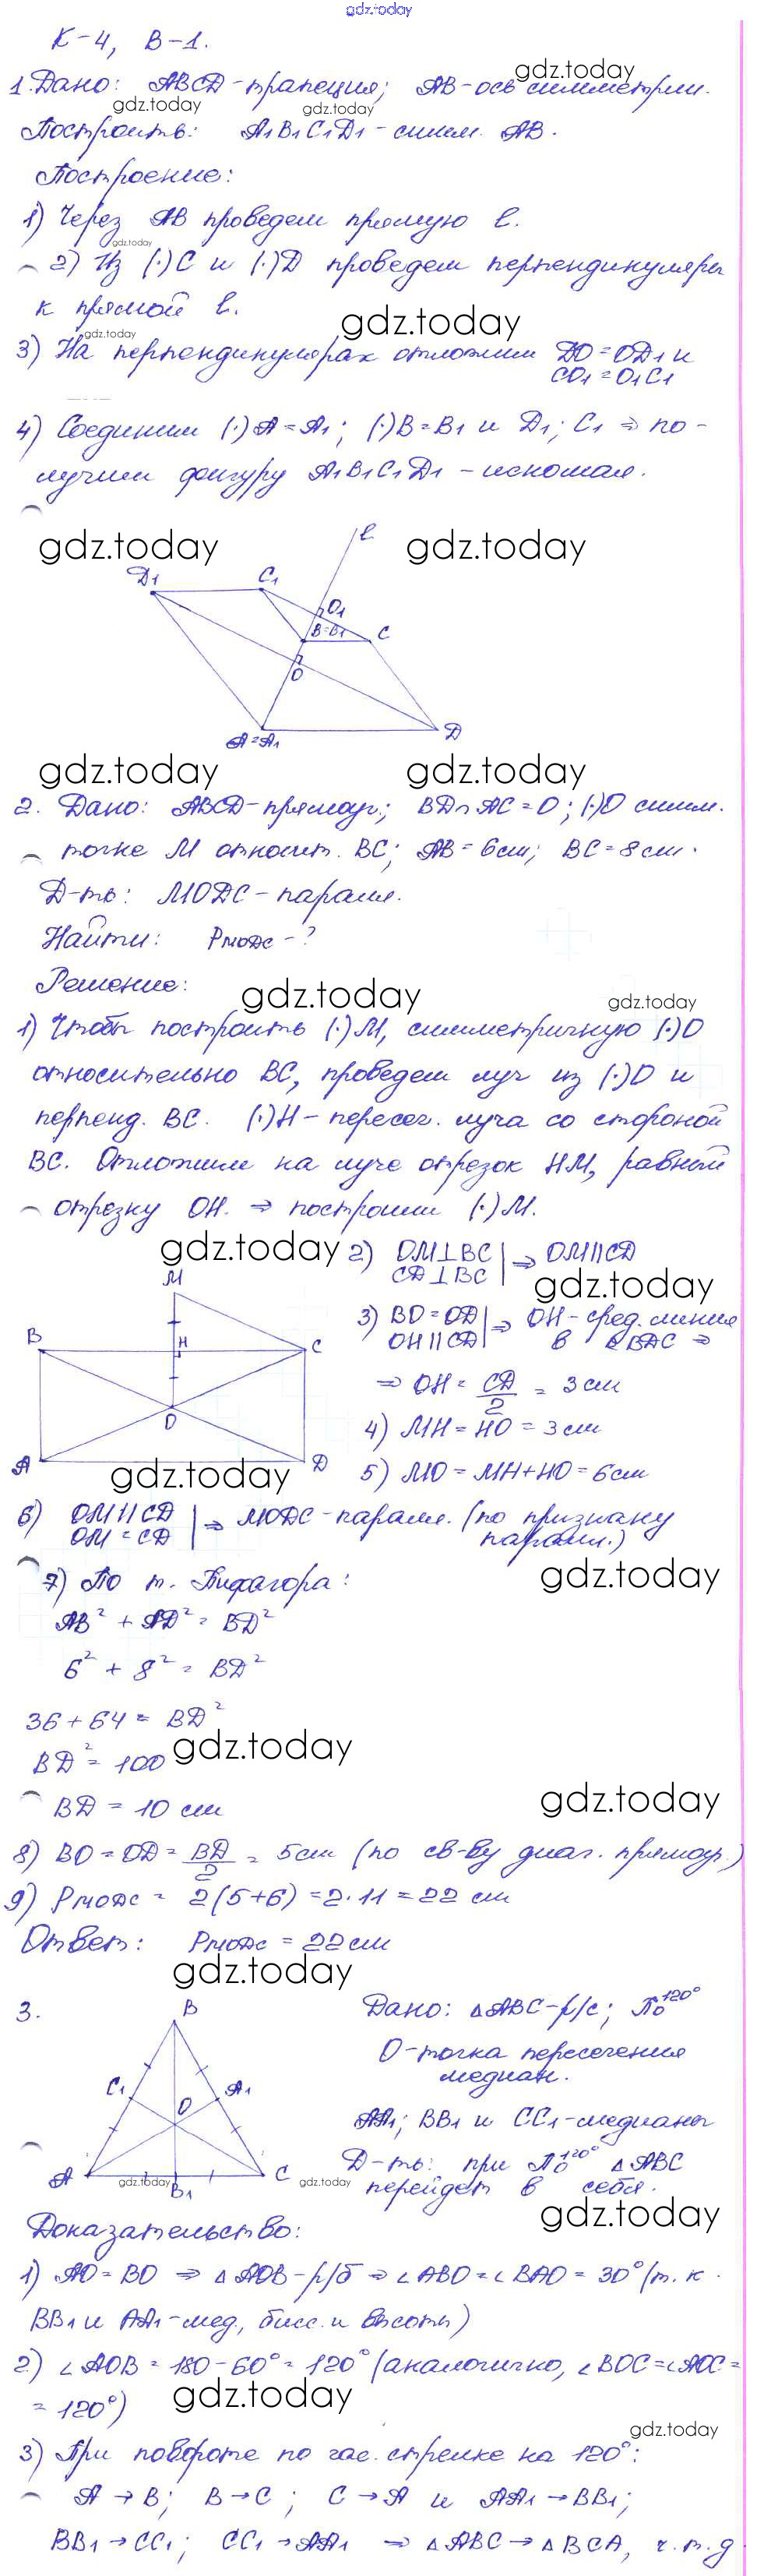 gdz.today
К-4, В-1.
gdz.today
1. Дано: ABCD - трапеция; AB - ось симметрии.
gdz.today gdz.today
Построить: A₁B₁C₁D₁ - симм. AB.
Построение:
1) Через AB проведем прямую l.
gdz.today
2) Из (·)C и (·)D проведем перпендикуляры
к прямой l.
gdz.today
gdz.today
3) На перпендикулярах отложим DO=OD₁ и
CO₁=O₁C₁
4) Соединим (·)A=A₁; (·)B=B₁ и D₁; C₁ ⇒ по-
лучим фигуру A₁B₁C₁D₁ - искомая.
l
gdz.today gdz.today
D₁ C₁
O₁
B=B₁ C
O
A=A₁ D
gdz.today gdz.today
2. Дано: ABCD - прямоуг.; BD∩AC=O; (·)O симм.
точке M относит. BC; AB=6см; BC=8см.
Д-ть: MODC - паралл.
Найти: P MODC - ?
Решение:
gdz.today gdz.today
1) Чтобы построить (·)M, симметричную (·)O
относительно BC, проведем луч из (·)O и
перпенд. BC. (·)H - пересеч. луча со стороной
BC. Отложим на луче отрезок HM, равный
отрезку OH. ⇒ построим (·)M.
gdz.today
2) OM⊥BC | ⇒ OM||CD
CD⊥BC |
gdz.today
M
B H C
O
A D
3) BO=OD | ⇒ OH - сред. линия
OH||CD | в △BDC ⇒
⇒ OH = CD/2 = 3см
4) MH=HO=3см
5) MO=MH+HO=6см
gdz.today
6) OM||CD | ⇒ MODC - паралл. (по признаку
OM=CD | паралл.)
gdz.today
7) По т. Пифагора:
AB² + AD² = BD²
6² + 8² = BD²
36+64 = BD²
BD² = 100
gdz.today
BD = 10 см
gdz.today
8) BO=OD = BD/2 = 5см (по св-ву диаг. прямоуг.)
9) P MODC = 2(5+6) = 2·11 = 22 см
Ответ: P MODC = 22см
gdz.today
3.
B
C₁ A₁
O
A B₁ C
gdz.today gdz.today
Дано: △ABC - р/с; По 120°
O - точка пересечения
медиан.
AA₁; BB₁ и CC₁ - медианы
Д-ть: при По 120° △ABC
перейдет в себя.
gdz.today
Доказательство:
1) AO=BO ⇒ △AOB - р/б ⇒ ∠ABO=∠BAO=30° (т.к.
BB₁ и AA₁ - мед., бисс. и высоты)
2) ∠AOB = 180-60° = 120° (аналогично, ∠BOC=∠AOC=
= 120°)
gdz.today
gdz.today
3) При повороте по час. стрелке на 120°:
A→B; B→C; C→A и AA₁→BB₁;
BB₁→CC₁; CC₁→AA₁ ⇒ △ABC→△BCA, ч.т.д.